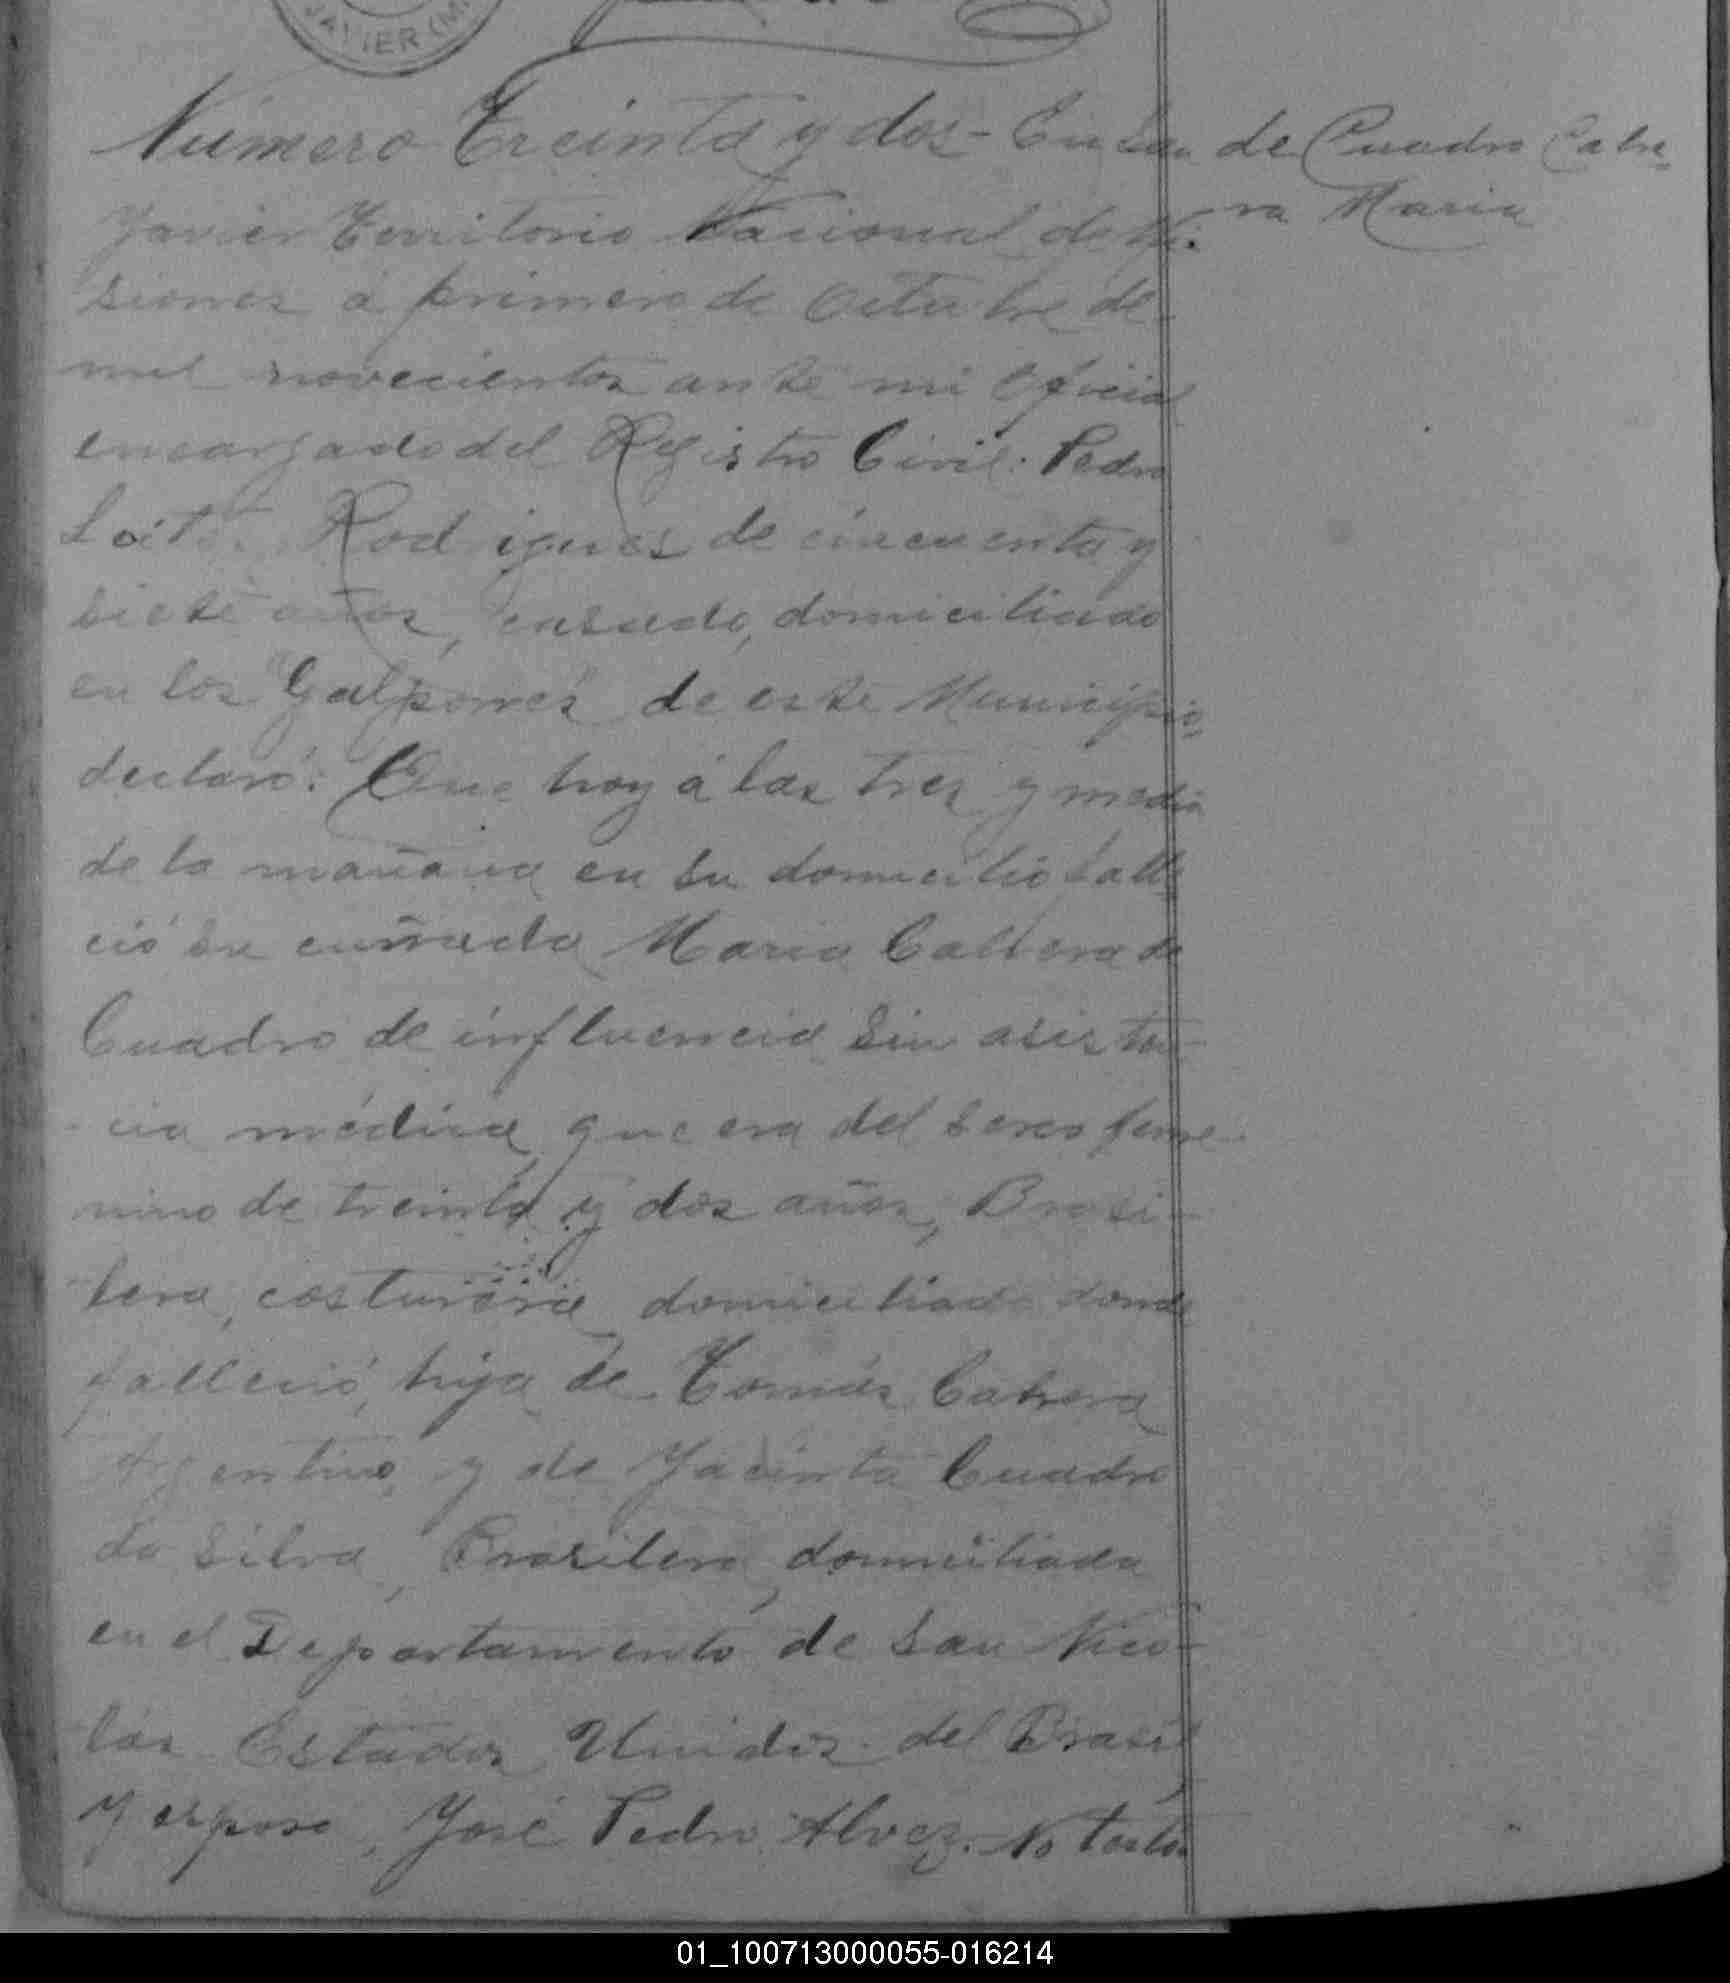 JAVIER (M
Número Treinta y dos - En San
de Cuadro Cabre-
ra Maria
Javier Territorio Nacional de Mi-
siones á primero de Octubre de
mil novecientos ante mi Oficial
encargado del Registro Civil: Pedro
Rodrigues de cincuenta y
siete años, casado, domiciliado
en los "Galpones" de este Municipio
declaró: Que hoy á las tres y media
de la mañana en su domicilio falle-
ció su cuñada Maria Cabrera de
Cuadro de influencia sin asisten-
cia médica, que era del sexo feme-
nino de treinta y dos años, Brasi-
lera, costurera, domiciliada donde
falleció, hija de Tomás Cabrera
Argentino, y de Jacinta Cuadro
da Silva, Brasilera, domiciliada
en el Departamento de San Nico-
lás Estados Unidos del Brasil
y esposo, José Pedro Alvez. No testó.
01_100713000055-016214